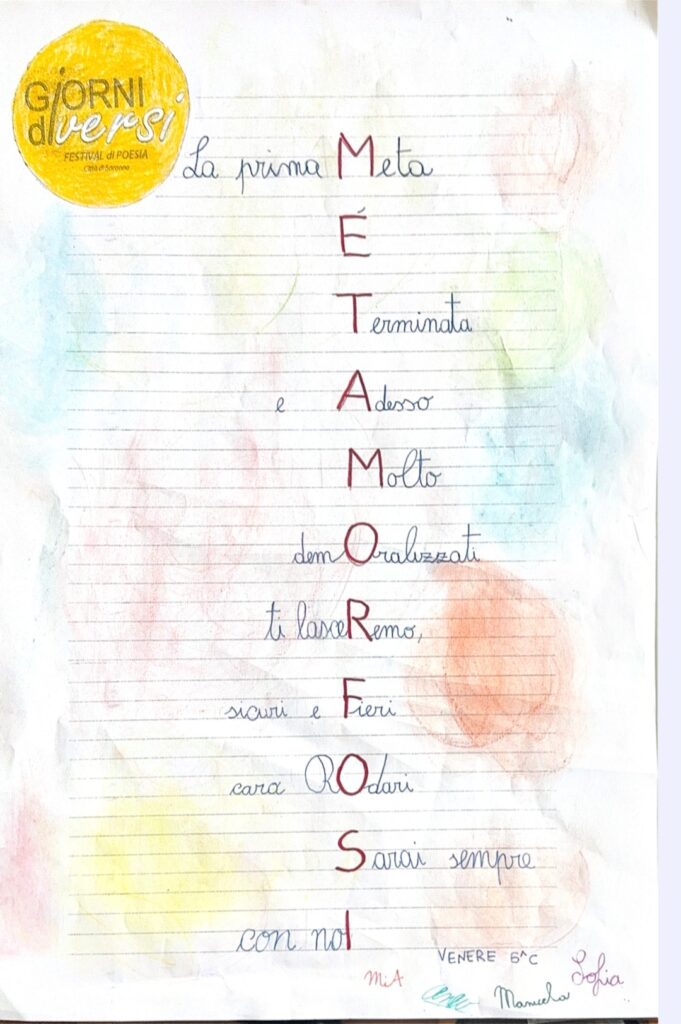 GiORNI
diversi
FESTIVAL di POESIA
Città di Saronno
La prima Meta
É
Terminata
e Adesso
Molto
demOralizzati
ti lasceRemo,
sicuri e Fieri
cara ROdari
Sarai sempre
con noI
VENERE 5^C
MiA
Manuela
Sofia